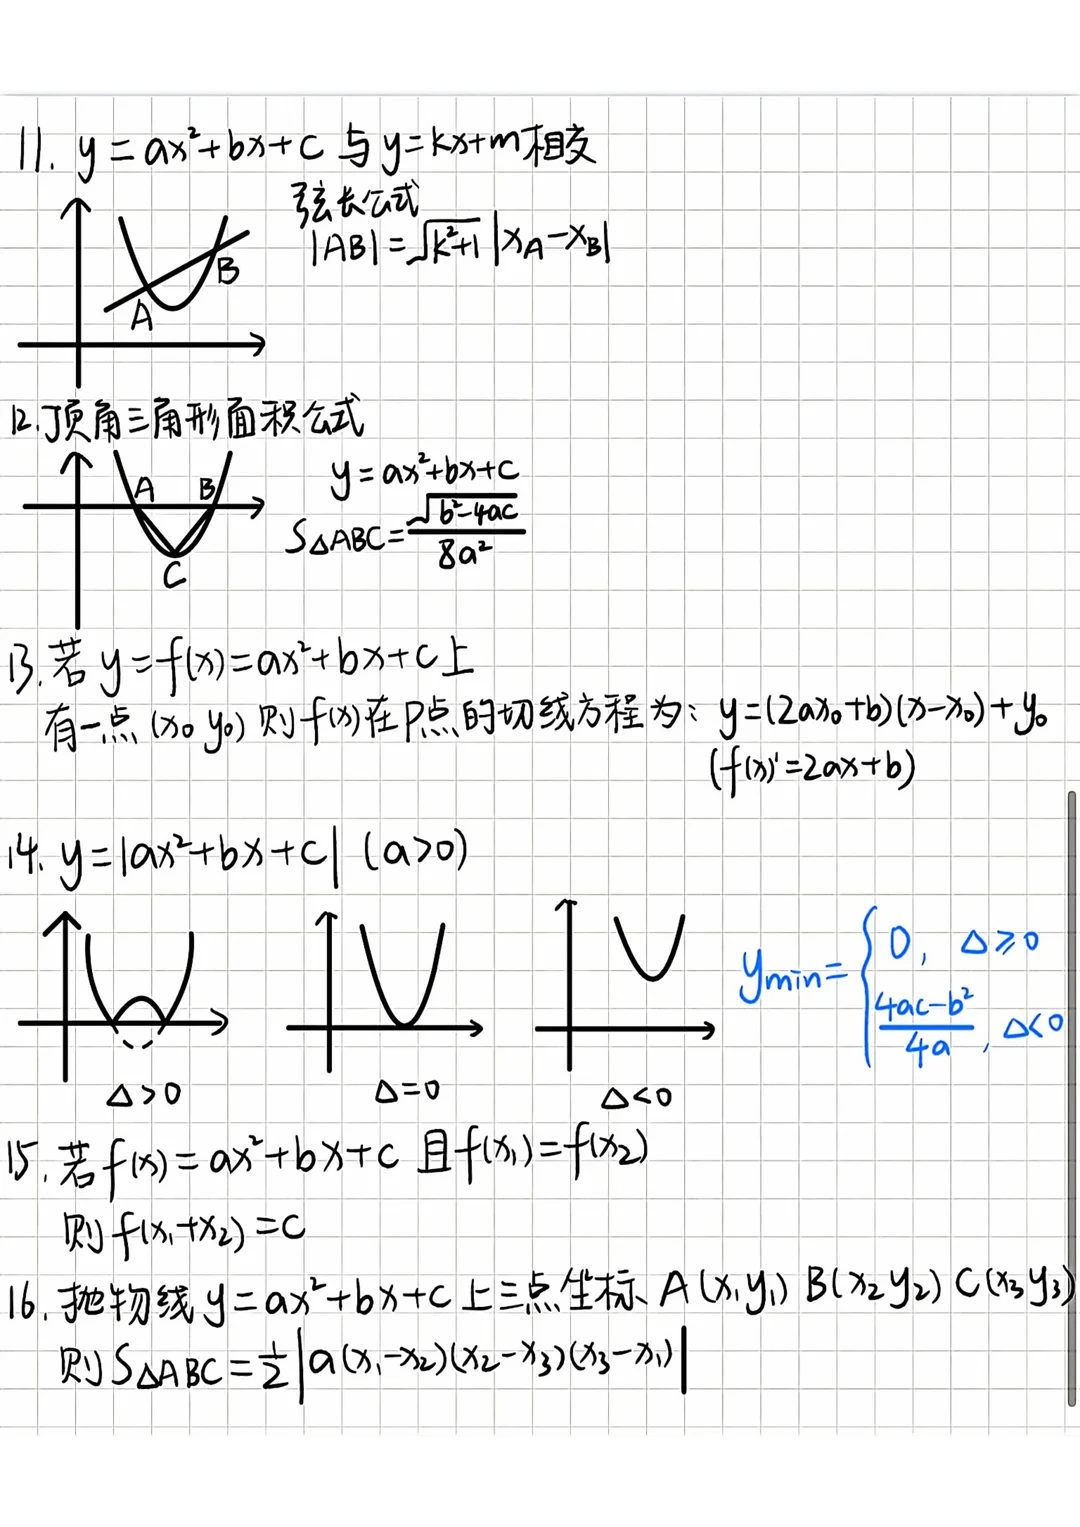 11. y=ax²+bx+c 与 y=kx+m相交
弦长公式
|AB|=√(k²+1) |x_A-x_B|
A
B
12.顶角三角形面积公式
A B
C
y=ax²+bx+c
S△ABC=√(b²-4ac)/8a²
13.若 y=f(x)=ax²+bx+c上
有一点 (x₀ y₀) 则f(x)在P点的切线方程为: y=(2ax₀+b)(x-x₀)+y₀
(f(x)'=2ax+b)
14. y=|ax²+bx+c| (a>0)
△>0
△=0
△<0
y_min={0, △≥0
(4ac-b²)/4a, △<0
15. 若 f(x)=ax²+bx+c 且f(x₁)=f(x₂)
则 f(x₁+x₂)=c
16. 抛物线 y=ax²+bx+c 上三点坐标 A(x₁y₁) B(x₂y₂) C(x₃y₃)
则 S△ABC=½|a(x₁-x₂)(x₂-x₃)(x₃-x₁)|